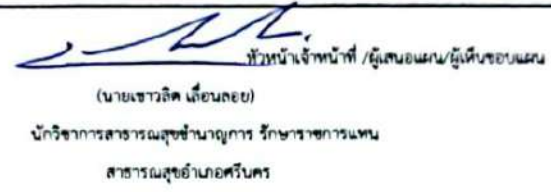 หัวหน้าเจ้าหน้าที่ /ผู้เสนอแผน/ผู้เห็นชอบแผน
(นายเชาวลิต เลื่อนลอย)
นักวิชาการสาธารณสุขชำนาญการ รักษาราชการแทน
สาธารณสุขอำเภอศรีนคร